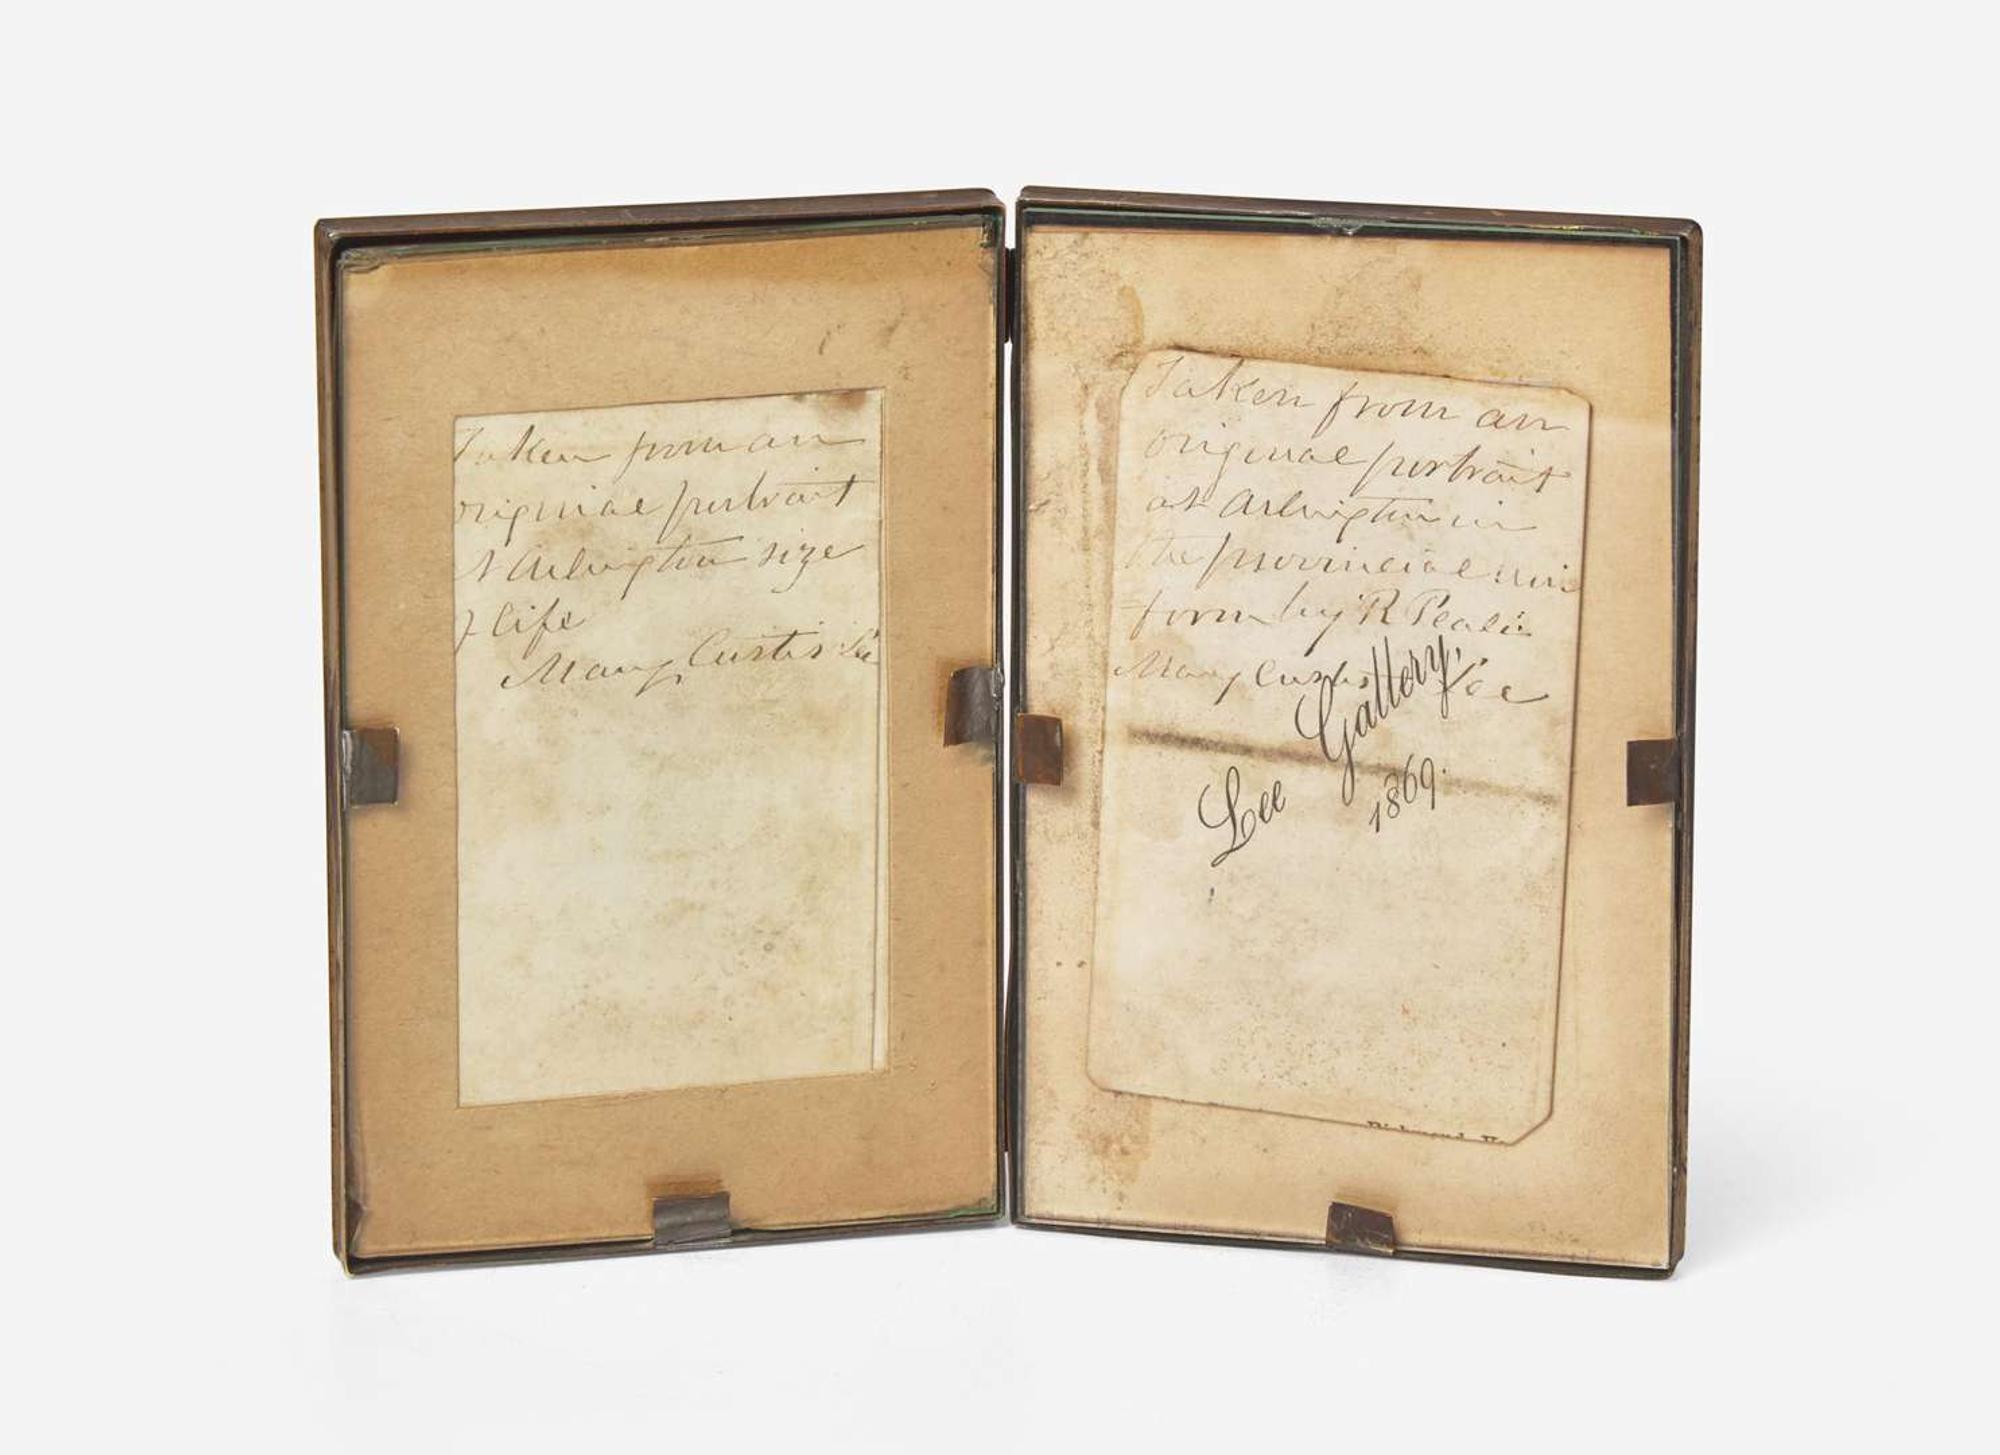 Taken from an
original portrait
t Arlington size
f life
Mary Custis Lee
Taken from an
original portrait
at Arlington in
the provincial uni
form by R Peale
Mary Custis Lee
Lee Gallery,
1869.
Richmond, Va